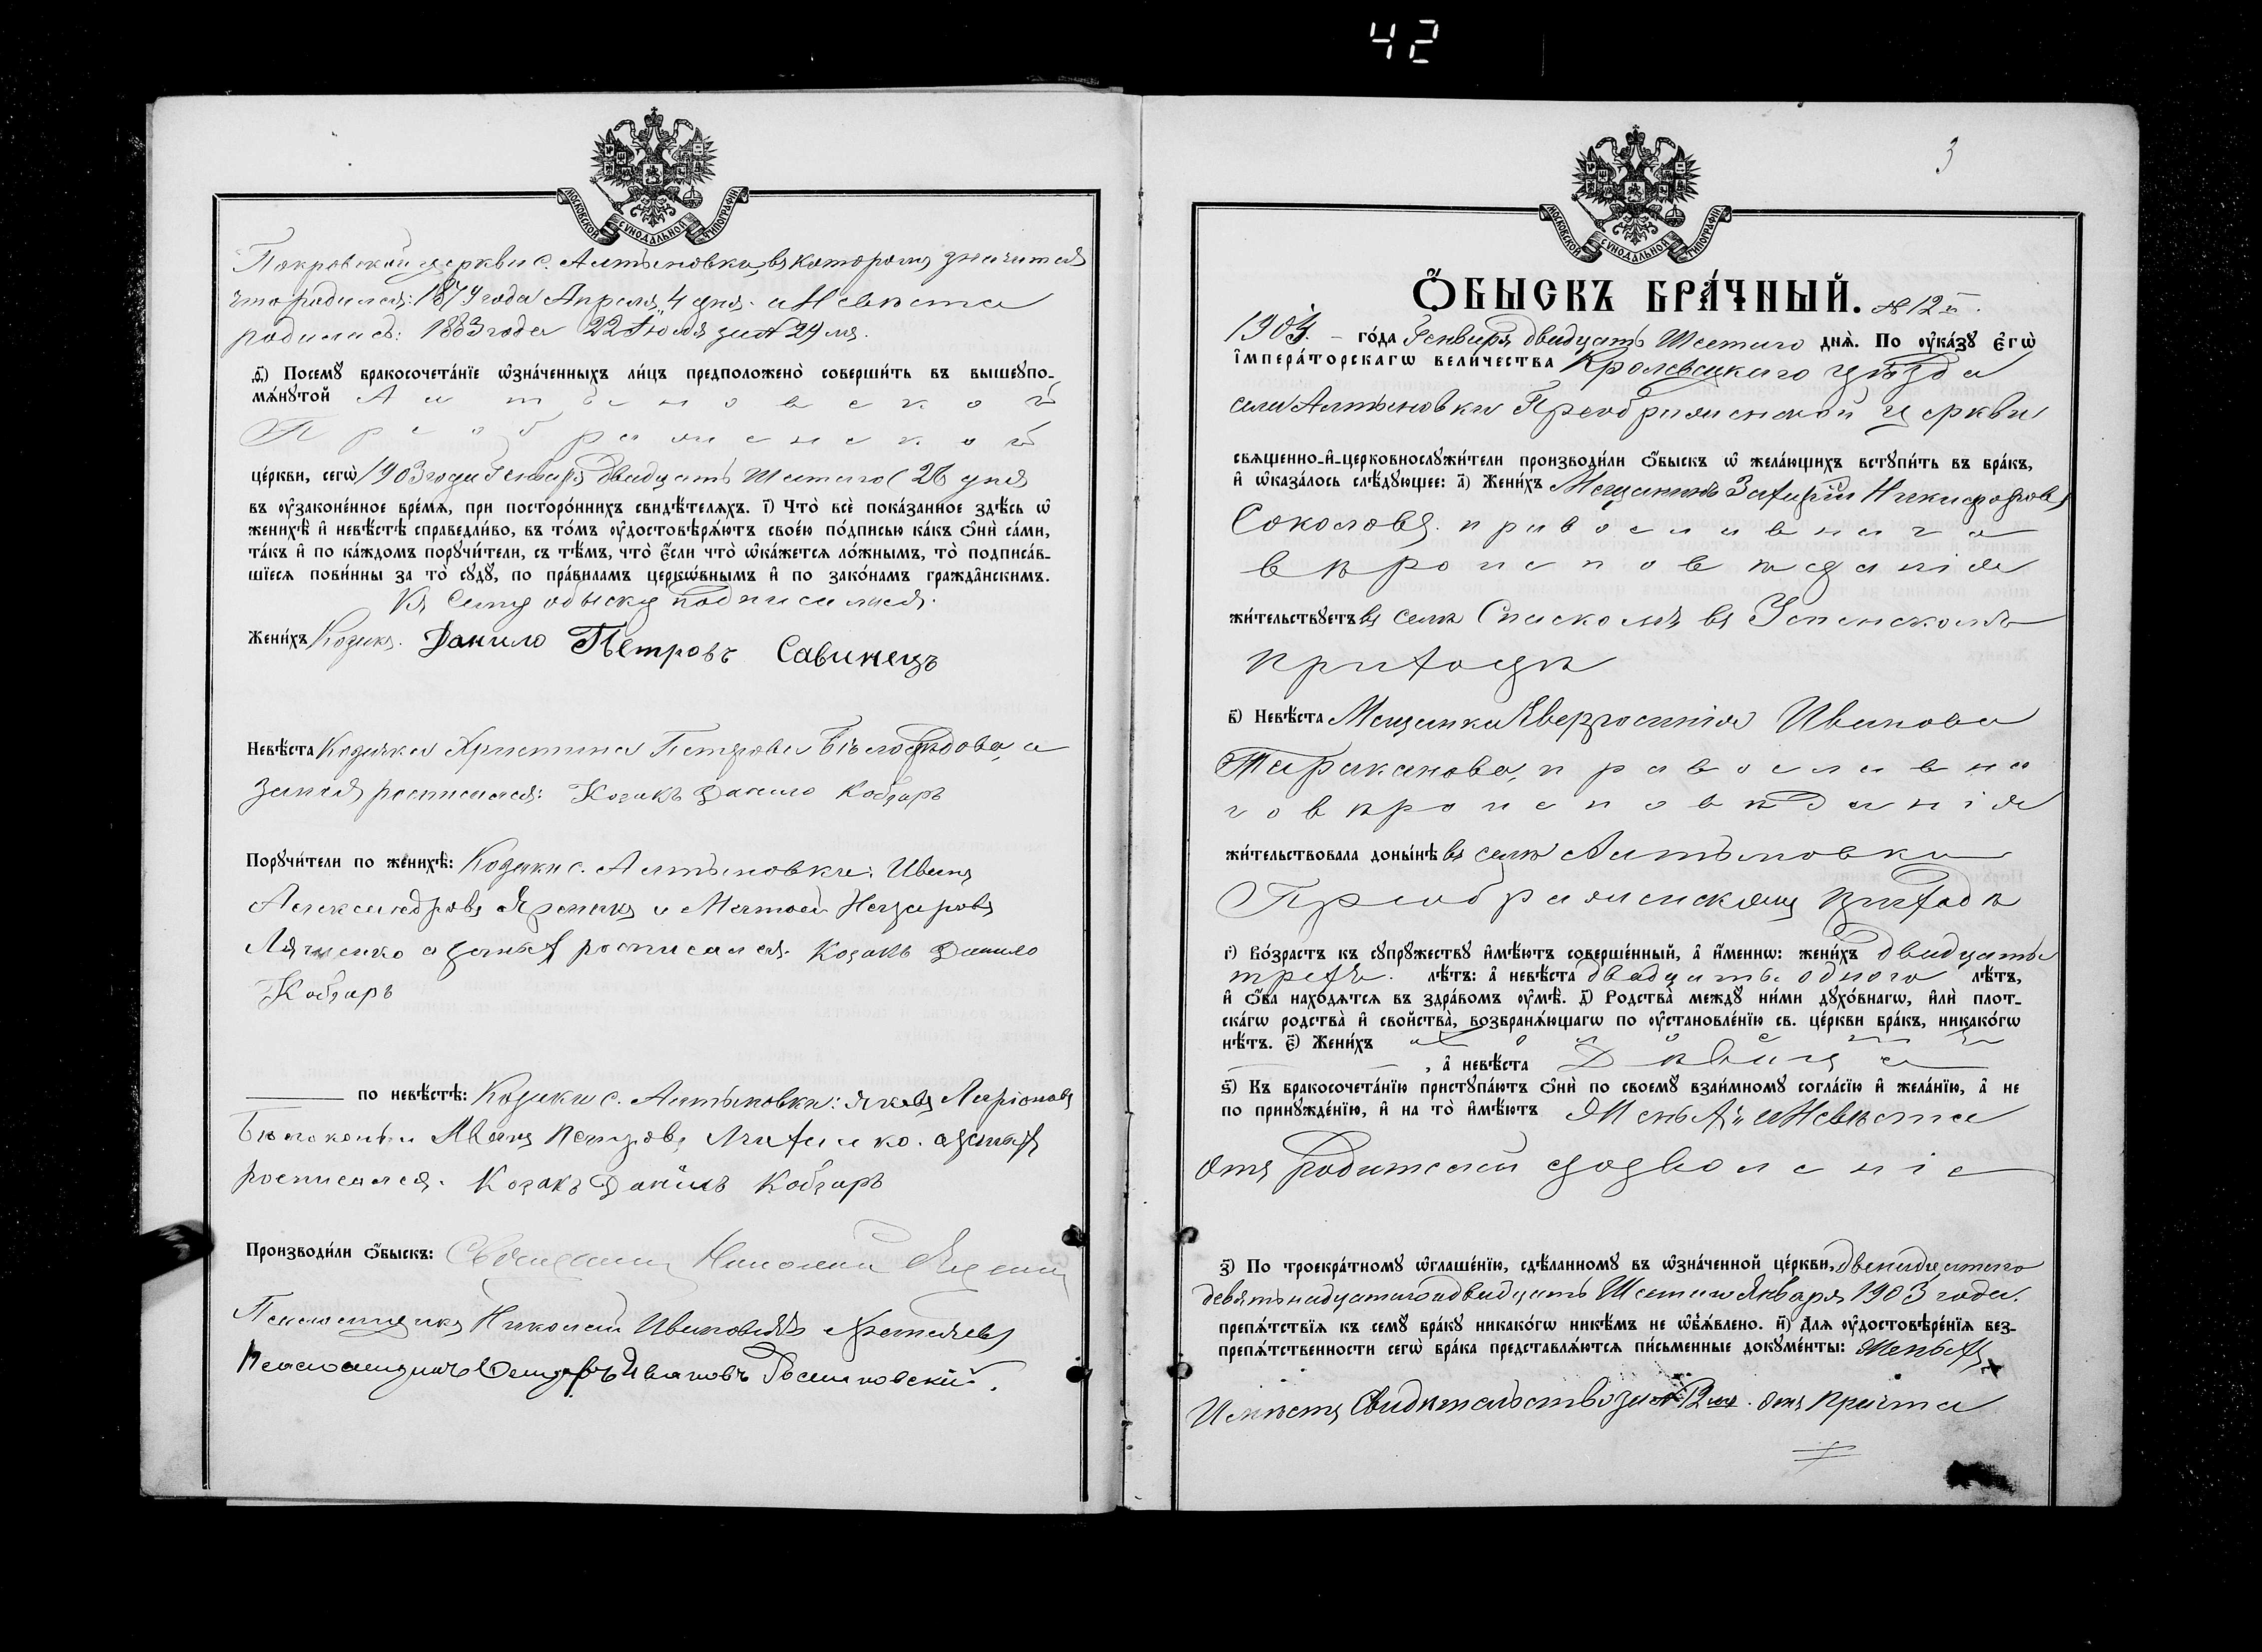 42
МОСКОВСКОЙ СУНОДАЛЬНОЙ ТИПОГРАФІИ
Покровской церкви с. Алтыновки, въ которомъ значится
что родился: 1879 года Апреля 4 дня. а Невѣста
родилась: 1883 года 22 Іюля за № 29 мъ.
д҃і) Посемꙋ бракосочета́нїе ѡ҆зна́ченныхъ ли́цъ предположено̀ соверши́ть въ вышеꙋпо-
мѧ́нꙋтой Алтыновской
Преображенской
це́ркви, сегѡ̀ 1903 года Генваря двадцать Шестаго (26 дня
въ ᲂу҆зако́ненное вре́мѧ, при посторо́ннихъ свидѣ́телѧхъ. і҃) Что̀ всѐ пока́занное здѣ́сь ѡ҆
женихѣ̀ и҆ невѣ́стѣ справедли́во, въ то́мъ ᲂу҆достовѣрѧ́ютъ свое́ю по́дписью ка́къ ѻ҆нѝ са́ми,
та́къ и҆ по ка́ждомъ порꙋчи́тели, съ тѣ́мъ, что̀ є҆́сли что̀ ѡ҆ка́жетсѧ ло́жнымъ, то̀ подписа́в-
шїесѧ пови́нны за то̀ сꙋдꙋ̀, по пра́виламъ церкѡ́внымъ и҆ по зако́намъ гражда̂нскимъ.
Къ Сему обыску подписался.
Жени́хъ Козакъ. Данило Петровъ Савинецъ
Невѣ́ста Козачка Христина Петрова а
занея росписался: Козакъ Данило Кобзарь
Порꙋчи́тели по женихѣ̀: Козаки с. Алтыновки: Иванъ
Александровъ и Матвей Назаровъ
Ляшенко а заныхъ росписался. Козакъ Данило
Кобзарь
по невѣ́стѣ: Козаки с. Алтыновки: Яковъ Ларіоновъ
Иванъ Петровъ
росписался. Козакъ Данило Кобзарь
Производи́ли ѻ҆́быскъ: Священникъ Николай
Псаломщикъ Николай Ивановичъ
Псаломщикъ Ивановъ
3
МОСКОВСКОЙ СУНОДАЛЬНОЙ ТИПОГРАФІИ
Ѻ҆́БЫСКЪ БРА́ЧНЫЙ. № 12 й.
1903. – го́да Генваря двадцать Шестаго днѧ̀. По ᲂу҆ка́зꙋ є҆гѡ̀
і҆мпера́торскагѡ вели́чества Кролевецкаго уѣзда
села Алтыновки Преображенской церкви
свѧщенно-и҆-церковнослꙋжи́тели производи́ли ѻ҆́быскъ ѡ҆ жела́ющихъ встꙋпи́ть въ бра́къ,
и҆ ѡ҆каза́лось слѣ́дꙋющее: а҃) Жени́хъ Мещанинъ Захарій Никифоровъ
Соколовъ. православнаго
вѣроисповѣданія
жи́тельствꙋетъ въ селѣ Спаскомъ въ Успенскомъ
приходѣ
в҃) Невѣ́ста Мещанка Евфросинія Иванова
Тараканова, православна
го вѣроисповѣданія
жи́тельствовала доны́нѣ въ селѣ Алтыновки
Преображенскому приходѣ
г҃) Во́зрастъ къ сꙋпрꙋ́жествꙋ и҆мѣ́ютъ соверше́нный, а҆ и҆́меннѡ: жени́хъ двадцать
трехъ. лѣ́тъ: а҆ невѣ́ста двадцать одного лѣ́тъ,
и҆ ѻ҆́ба нахо́дѧтсѧ въ здра́вомъ ᲂу҆мѣ̀. д҃) Родства̀ междꙋ̀ ни́ми дꙋхо́внагѡ, и҆лѝ плот-
ска́гѡ родства̀ и҆ сво́йства̀, возбранѧ́ющагѡ по ᲂу҆становле́нїю св. це́ркви бра́къ, никако́гѡ
нѣ́тъ. є҃) Жени́хъ холостъ
, а҆ невѣ́ста Дѣвица
ѕ҃) Къ бракосочета́нїю пристꙋпа́ютъ ѻ҆нѝ по своемꙋ̀ взаи́мномꙋ согла́сїю и҆ жела́нїю, а҆ не
по принꙋжде́нїю, и҆ на то̀ и҆мѣ́ютъ Женихъ и Невѣста
отъ Родителей дозволеніе
з҃) По троекра́тномꙋ ѡ҆глаше́нїю, сдѣ́ланномꙋ въ ѡ҆зна́ченной це́ркви, двенадцатаго
девятьнадцатаго и двадцать Шестаго Января 1903 года.
препѧ́тствїѧ къ семꙋ̀ бра́кꙋ никако́гѡ никѣ́мъ не ѡ҆б̾ѧ́влено. и҃) Длѧ ᲂу҆достовѣре́нїѧ без-
препѧ́тственности сегѡ̀ бра́ка представлѧ́ютсѧ пи́сьменные докꙋме́нты: Женихъ
Имѣетъ Свидѣтельство за № 12 мъ. отъ причта